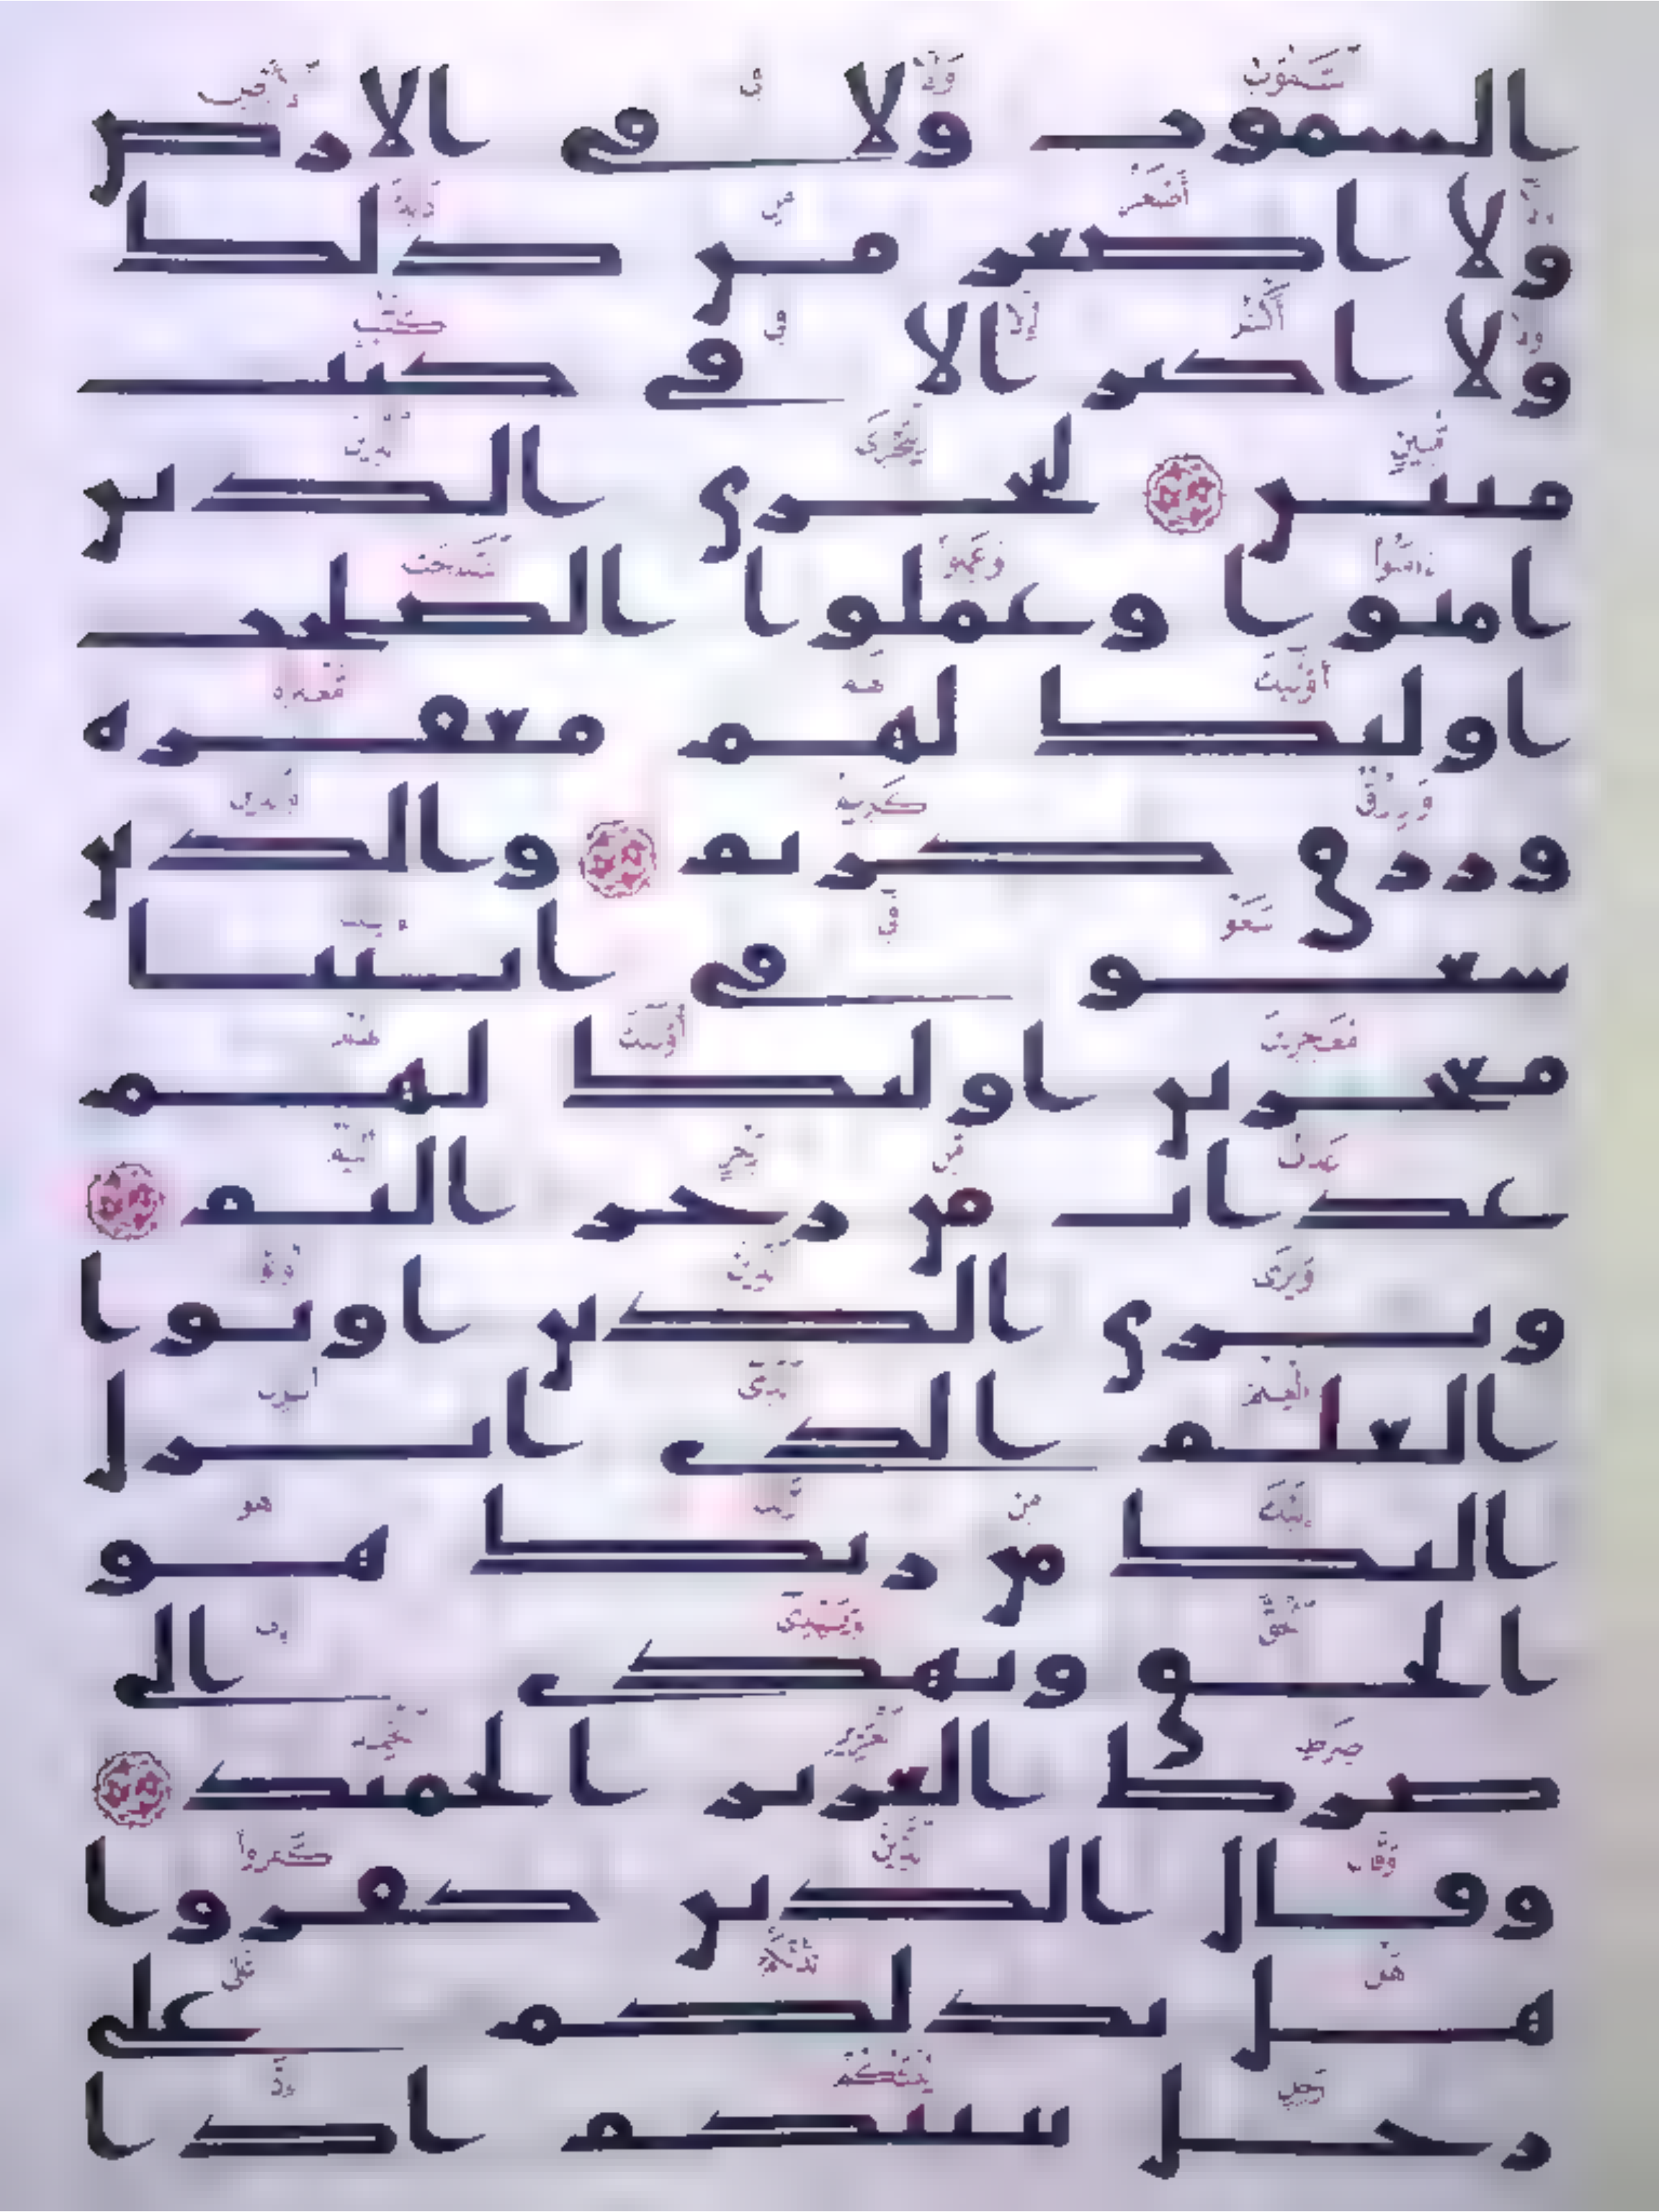 السموت ولا في الارض
ولا اصغر من ذلك
ولا اكبر الا في كتب
مبين ليجزى الذين
امنوا وعملوا الصلحت
اوليك لهم مغفره
ورزق كريم والذين
سعو في ايتنا
معجزين اوليك لهم
عذاب من رجز اليم
ويرى الذين اوتوا
العلم الذي انزل
اليك من ربك هو
الحق ويهدي الى
صرط العزيز الحميد
وقال الذين كفروا
هل ندلكم على
رجل ينبيكم اذا